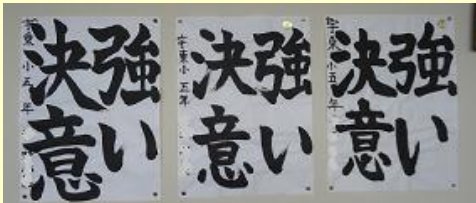 強い
決意
宇東小五年
強い
決意
宇東小五年
強い
決意
宇東小五年